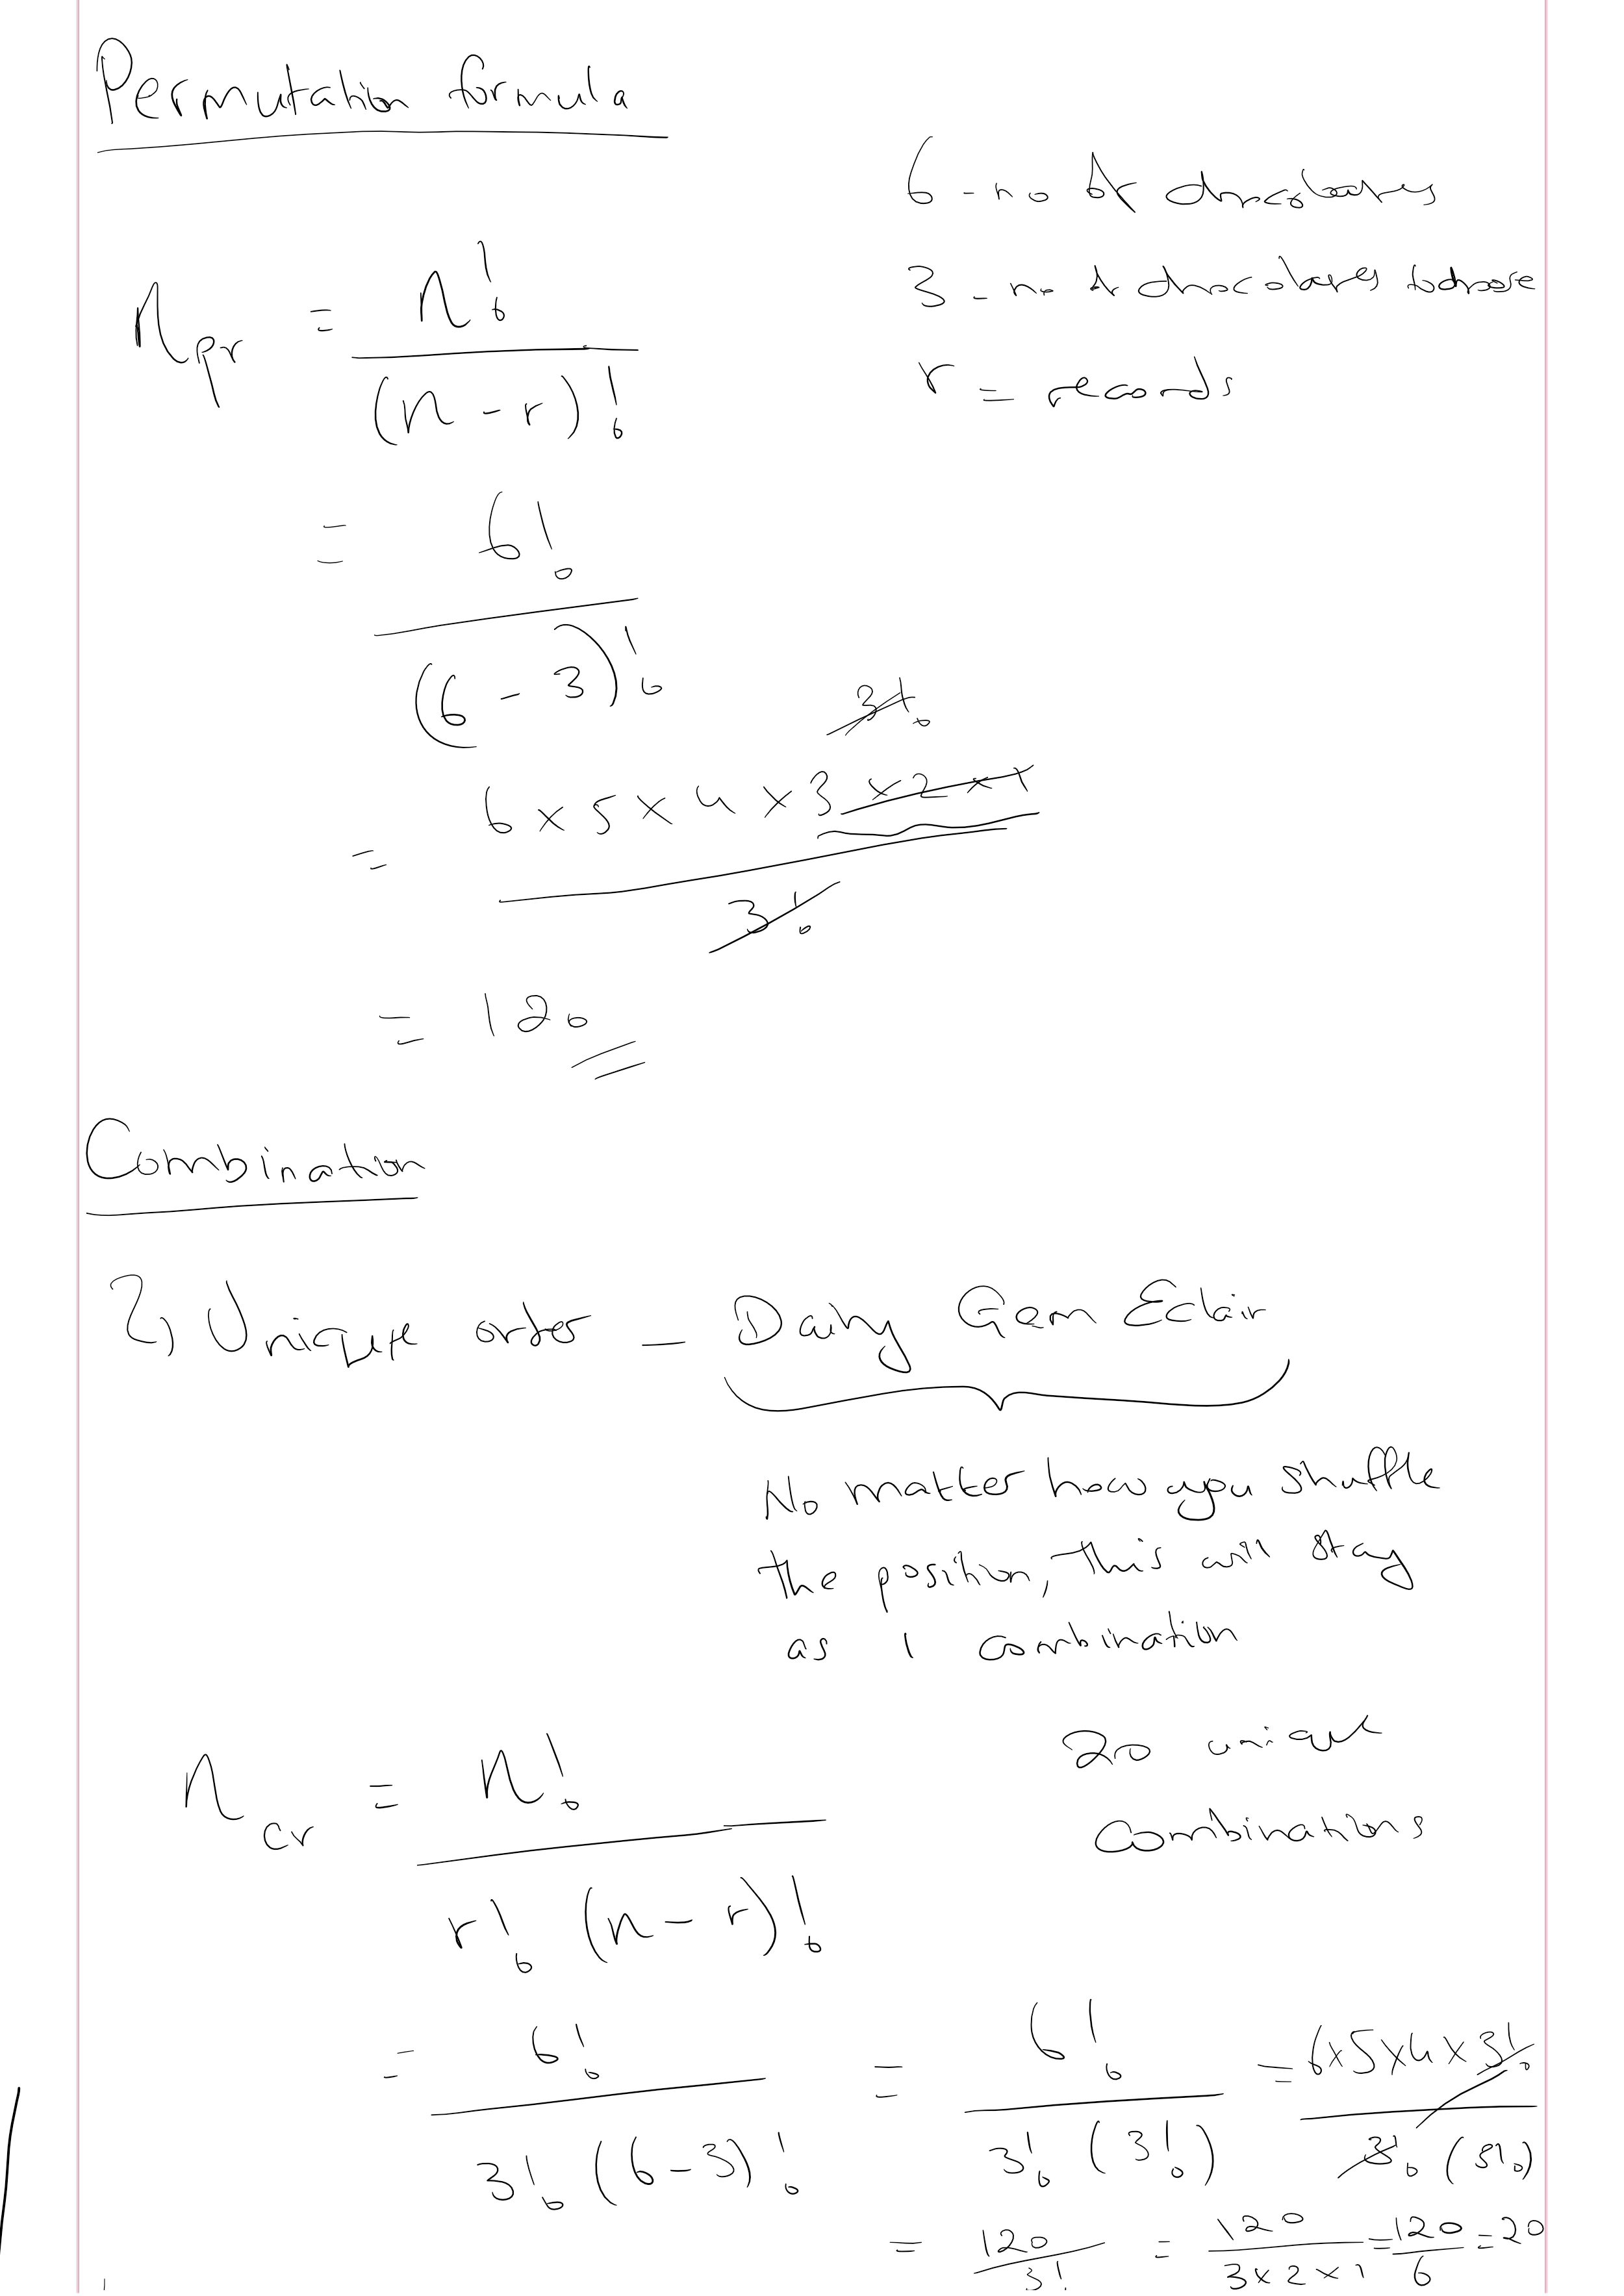 Permutation formula
6 - no of chocolates
3 - no of chocolates to choose
r = records
nPr = n! / (n - r)!
= 6! / (6 - 3)!
3!
= 6 x 5 x 4 x 3 x 2 x 1 / 3!
= 120
Combination
2) Unique order - Dairy Gem Eclair
No matter how you shuffle
the position, this will stay
as 1 combination
20 unique
Combinations
ncr = n! / r! (n - r)!
= 6! / 3! (6 - 3)! = 6! / 3! (3!) = 6x5x4x3! / 3! (3!)
= 120 / 3! = 120 / 3 x 2 x 1 = 120 / 6 = 20